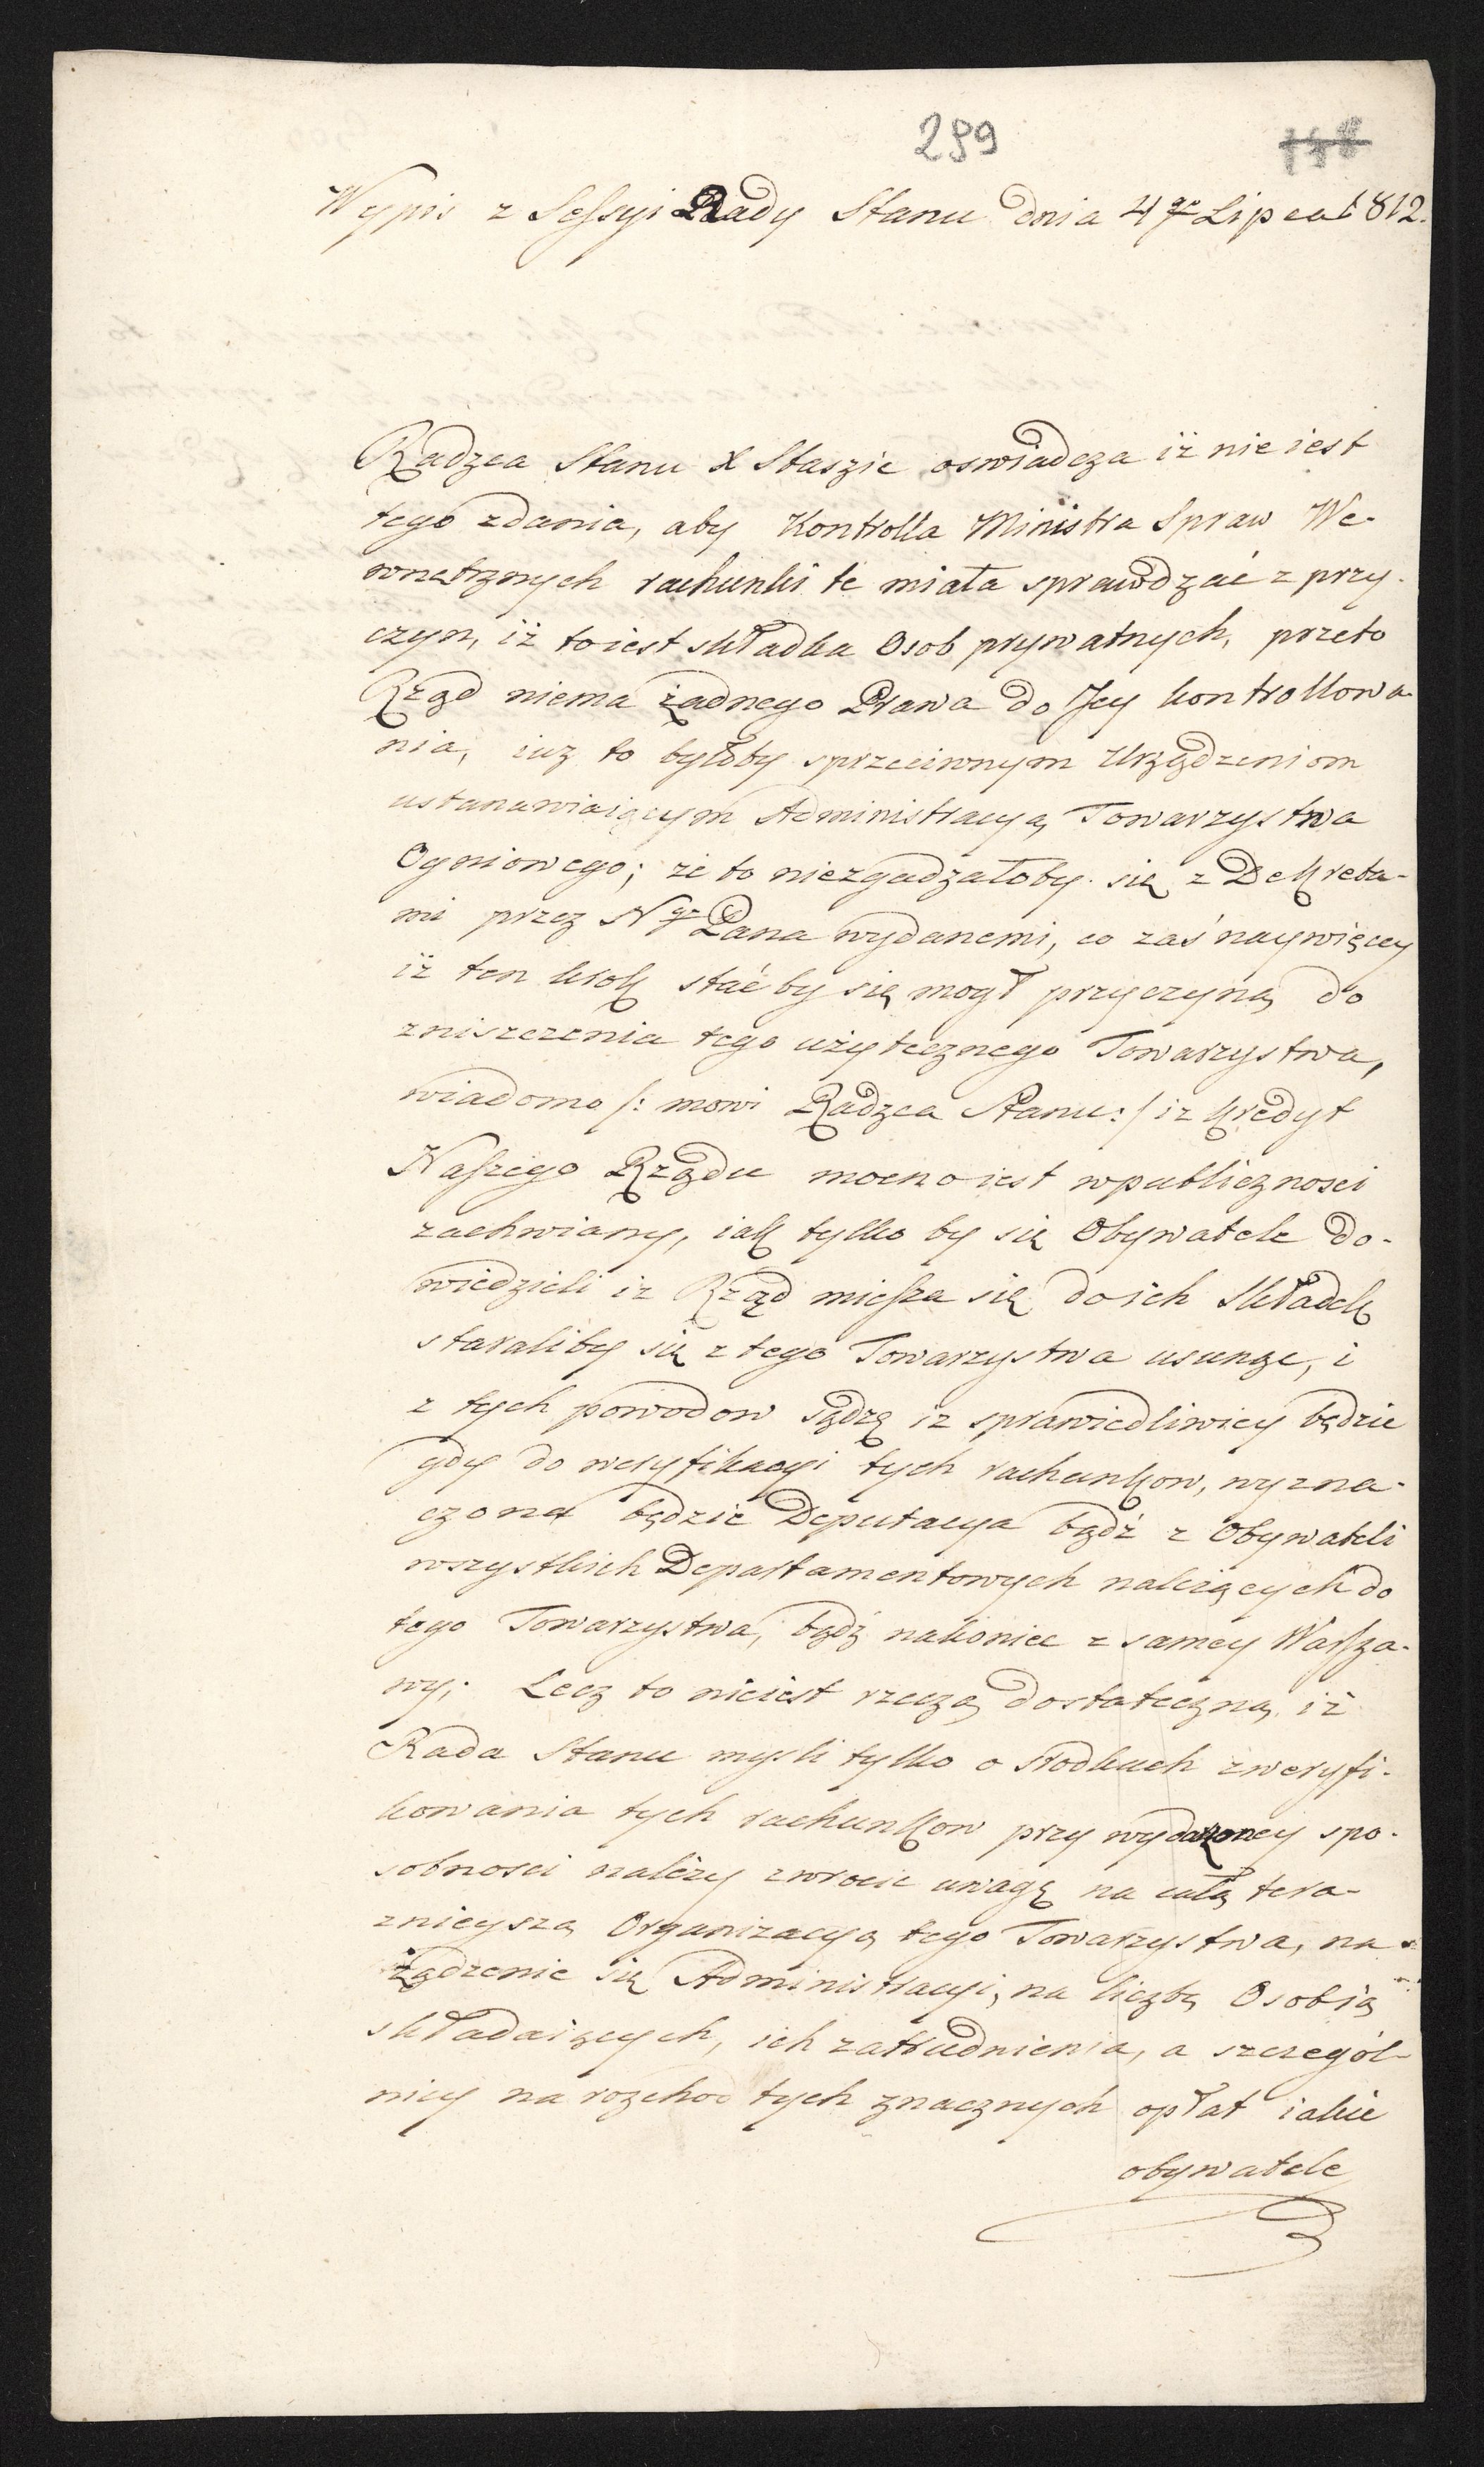 299
Wypis z Sessyi Rady Stanu dnia 4go Lipca 1812.
Radzca Stanu X Staszic oswiadcza iż nie iest
tego zdania, aby Kontrolla Ministra Spraw We-
wnętrznych rachunki te miała sprawdzać z przy-
czyn, iż to iest składka Osob prywatnych, przeto
Rząd niema żadnego Prawa do Jey kontrollowa-
nia, iuz to byłoby sprzeciwnym Urządzeniom
ustanawiaiącym Administracyą Towarzystwa
Ogniowego; że to niezgadzałoby się z Dekreta-
mi przez Ngo Pana wydanemi, co zaś naywięcey
iż ten krok stać by się mogł przyczyną do
zniszczenia tego użytecznego Towarzystwa,
wiadomo /: mowi Radzca Stanu :/ iz kredyt
Naszego Rządu mocno iest wpubliczności
zachwiany, iak tylko by się Obywatele do-
wiedzieli iz Rząd miesza się do ich Składek
staraliby się z tego Towarzystwa usunąc, i
z tych powodow sądzę iz sprawiedliwiey będzie
gdy do weryfikacyi tych rachunkow, wyzna-
czona będzie Deputacya bądź z Obywateli
wszystkich Departamentowych należących do
tego Towarzystwa, bądź nakoniec z samey Warsza-
wy; Lecz to nieiest rzeczą dostateczną iż
Rada Stanu mysli tylko o srodkach zweryfi-
kowania tych rachunkow przy wydarzoney spo-
sobnosci należy zwrocic uwagę na całą tera-
znieyszą Organizacyą tego Towarzystwa, na
rządzenie się Administracyi, na liczbę Osob ią
składaiących, ich zatrudnienia, a szczegól-
niey na rozchod tych znacznych opłat iakie
obywatele